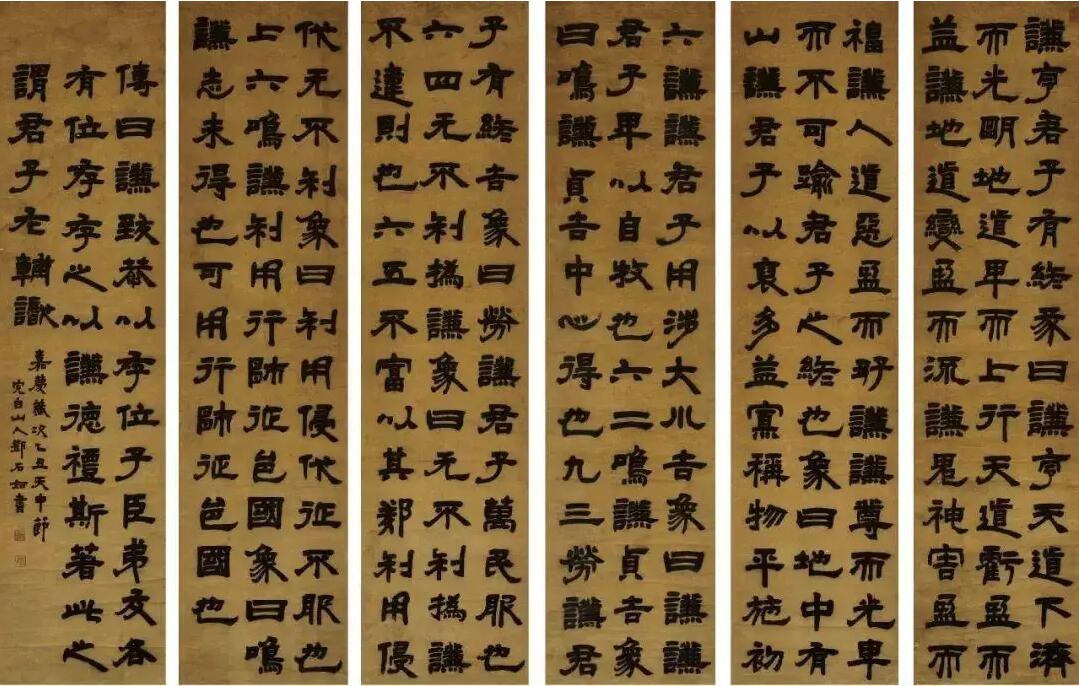 謙亨君子有終彖曰謙亨天道下濟
而光明地道卑而上行天道虧盈而
益謙地道變盈而流謙鬼神害盈而
福謙人道惡盈而好謙謙尊而光卑
而不可踰君子之終也象曰地中有
山謙君子以裒多益寡稱物平施初
六謙謙君子用涉大川吉象曰謙謙
君子卑以自牧也六二鳴謙貞吉象
曰鳴謙貞吉中心得也九三勞謙君
子有終吉象曰勞謙君子萬民服也
六四无不利撝謙象曰无不利撝謙
不違則也六五不富以其鄰利用侵
伐无不利象曰利用侵伐征不服也
上六鳴謙利用行師征邑國象曰鳴
謙志未得也可用行師征邑國也
傳曰謙致恭以存位子臣弟友各
有位存存之以謙德禮斯著此之
謂君子左輔識
嘉慶歲次乙丑天中節
完白山人鄧石如書